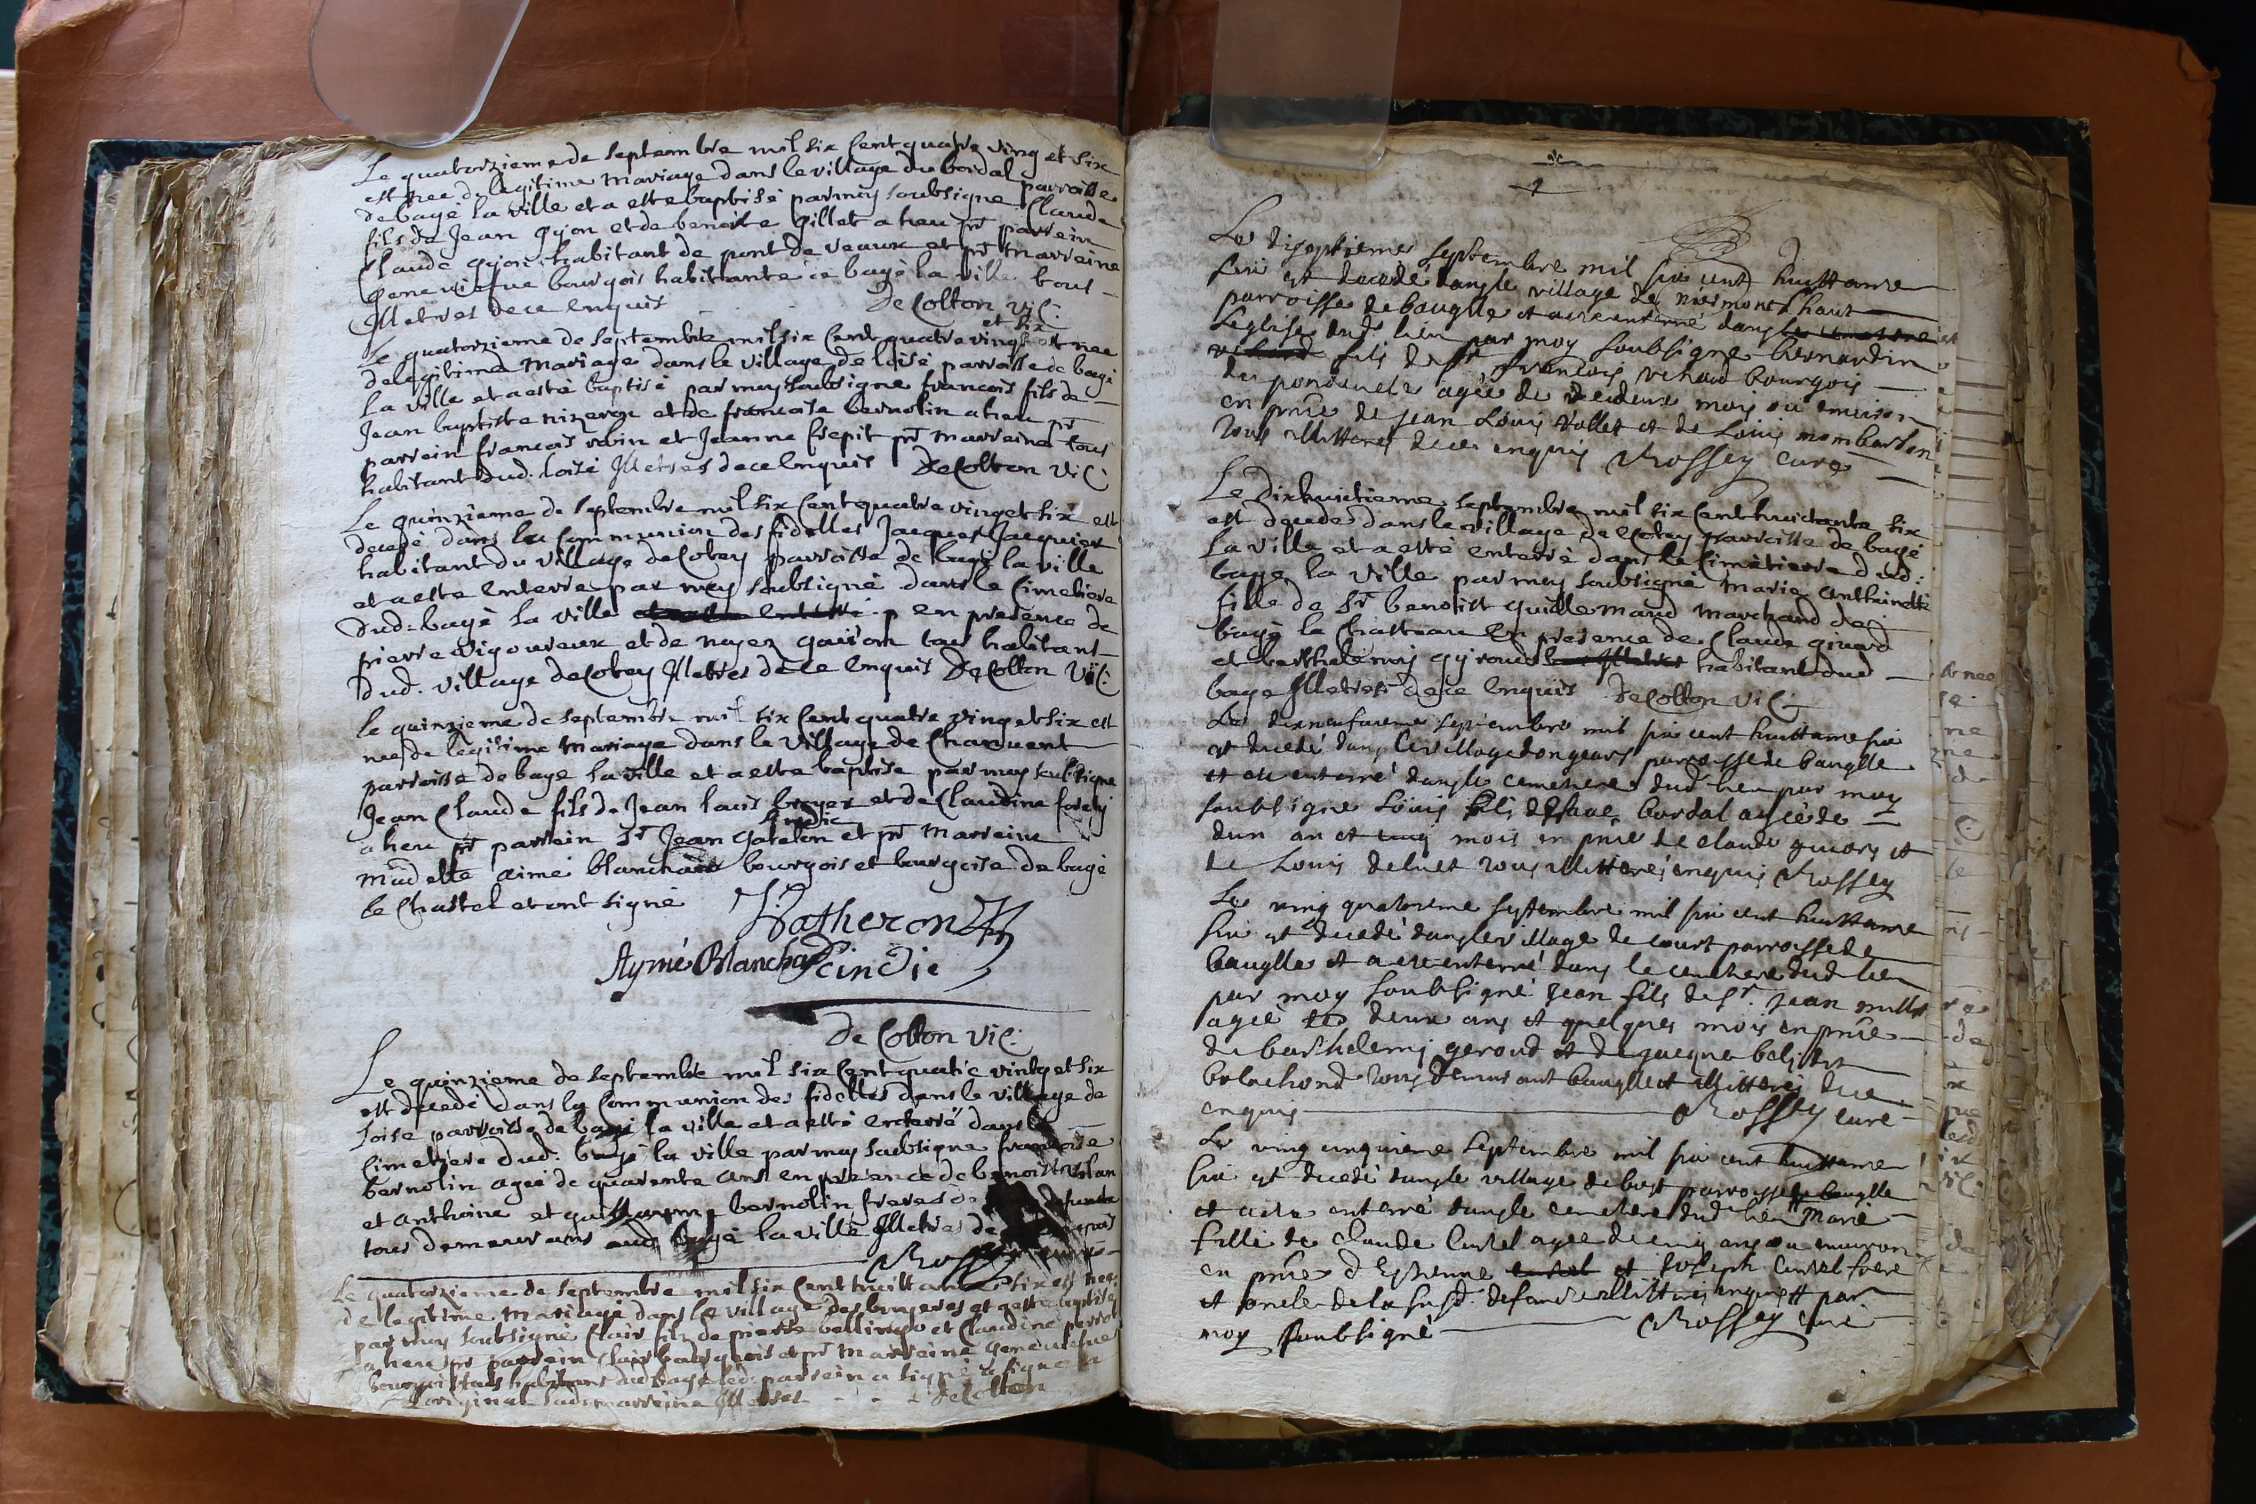 Le quatorzieme de septembre mil six Cent quatre ving et six
est nee de legitime mariage dans le village du bordal parroisse
de bagé la ville et a este baptisé par moy soubsigne Claude
fils de Jean gyon et de benoite gillet a heu pr parrein
Claude gyon habitant de pont de veaux et pr marreine
geneviefve bourgois habittante a bagé la ville tous
Illetres de ce Enquis DeColton ViC:
et six
Le quatorzieme de septembre mil six Cent quatre ving est nee
de legitime mariage dans le village de loise parroisse de bagé
la ville et a esté baptisé par moy soubsigne francois fils de
Jean baptiste nizeron et de francoise bernolin a heu pr
parrein francois robin et Jeanne frepit pr marreine tous
habitant dud. loise Illetres de ce Enquis DeColton ViC:
Le quinzieme de septembre mil six Cent quatre ving et six est
decedé dans la Communion des fidelles Jacques Jacquier
habitant du village de Cotey parroisse de bagé la ville
et a este enterre par moy soubsigné dans le Cimetiere
dud. bagé la ville en presence de
pierre vigoureux et de tous habitant
dud. village de Cotey Illetres de ce Enquis DeColton ViC:
le quinzieme de septembre mil six Cent quatre ving et six est
nee de legitime mariage dans le village de Charvent
parroisse de bagé la ville et a este baptise par moy soubsigne
Jean Claude fils de Jean louis broyer et de Claudine
Scindic
a heu pr parrein Sr Jean Gateron et pr Marreine
madelle aimé blanchard bourgois et bourgoise de bagé
le Chastel et ont signé J. Gatheron
Aymé Blanchard Scindic
De Colton ViC:
Le quinzieme de septembre mil six Cent quatre vintg et six
est decedé dans la Communion des fidelles dans le village de
loise parroisse de bagé la ville et a esté enterré dans le
Cimetiere dud. bagé la ville par moy soubsigne francoise
bernolin agee de quarente ans en presence de benoist
et anthoine et guillaume bernolin freres de defunte
tous demeurans aud bagé la ville Illetres de
Rossey
Le quatorzieme de septembre mil six Cent huittante six est nee
de legitime mariage dans le village des bruyeres et a este baptisé
par moy soubsigné Clair fils de pierre bellinge et Claudine perrot
a heu pr parrein Clair bourgois et pr Marreine geneviefve
bourgois tous habitans dud bagé led. parrein a signé
original lad. marreine Illetree DeColton
Le disseptieme septembre mil six cent huittante
six est decedé dans le village de niermont haut
parroisse de baugille et a esté enterré dans
l'eglise dud. lieu par moy soubsigne bernardin
fils de Sr francois rehaud bourgois
de pondevele agée de deux mois ou environ
en pnce de Jean Louis Vollet et de Louis mombarbon
tous illitteres de ce enquis Rossey Curé
Le dixhuitieme septembre mil six Cent huictante six
est decede dans le village de Cotey parroisse de bagé
la ville et a esté enterré dans le Cimetierre dud:
bage la ville par moy soubsigné marie anthoinette
fille de Sr benoist guillemaud marchand de
bagé le Chatteau En presence de Claude girard
et barthelemy gyroud habitant dud
bage Illetres de ce Enquis DeColton ViC:
Le dixneufieme septembre mil six cent huittante six
est decedé dans le village dongears parroisse de baugille
et esté enterré dans le cemetiere dud. lieu par moy
soubsigne Louis fils de bordal agée de
dun an et cinq mois en pnce de claude guiory et
de Louis deluet tous illitteres enquis Rossey
Le ving quatrieme septembre mil six cent huittante
six est decedé dans le village de court parroisse de
baugille et a esté enterré dans le cemetiere dud. lieu
par moy soubsigné Jean fils de Sr. Jean millet
agée de deux ans et quelques mois en pnce
de barthelemy geroud et de
tous demeurant baugille et illitteres de ce
enquis Rossey curé
Le ving cinquieme septembre mil six cent huittante
six est decedé dans le village de bost parroisse de baugille
et a este enterré dans le cemetiere dud. lieu Marie
fille de Claude Curtel agee de cinq ans ou environ
en pnce d'Estienne et Joseph Curtel frere
et oncle de la susd. defunte illitteres enquis par
moy soubsigné Rossey curé